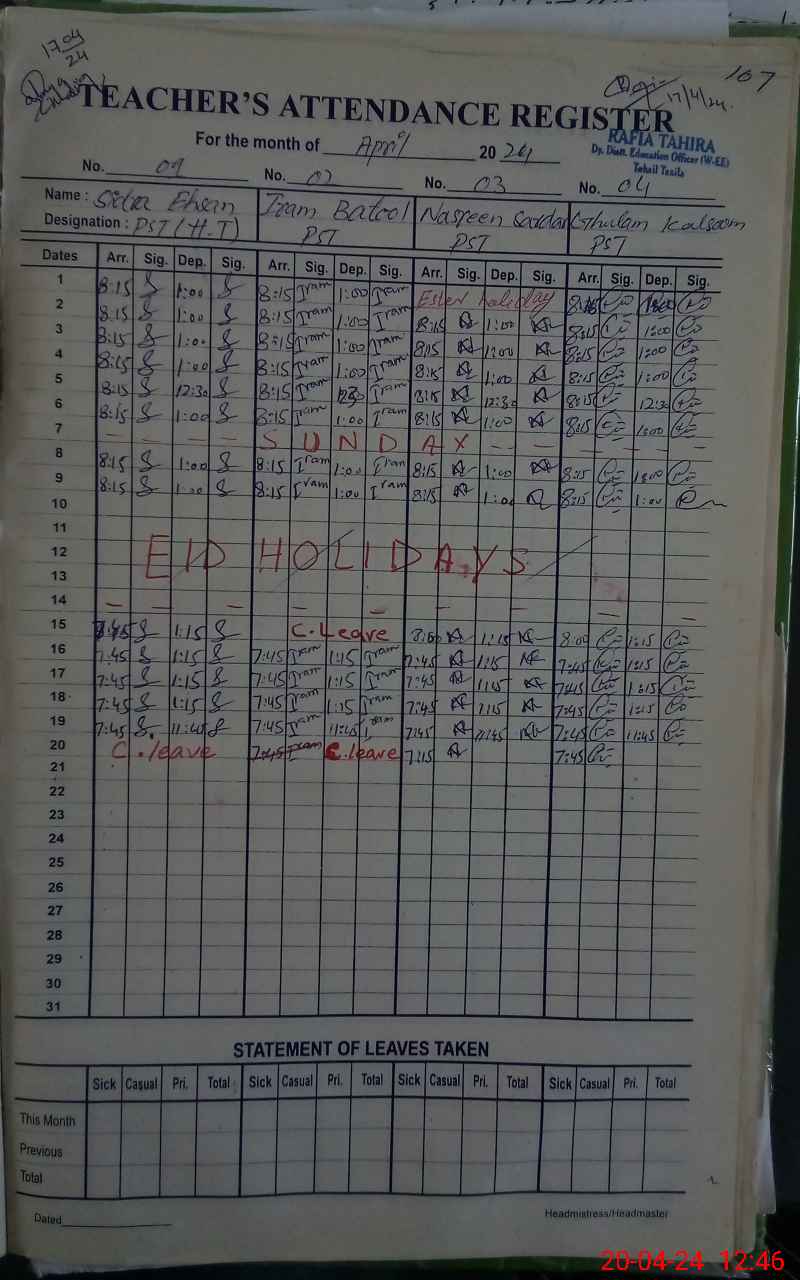 17 04
24
107
17/4/24.
TEACHER'S ATTENDANCE REGISTER
For the month of April 2024
RAFIA TAHIRA
Dy. Distt. Education Officer (W-EE)
Tehsil Taxila
No. 01 No. 02 No. 03 No. 04
Name : Sitra Ehsan Iram Batool Nasreen Sardar Ghulam Kalsoom
Designation : PST (H.T) PST PST PST
Dates Arr. Sig. Dep. Sig. Arr. Sig. Dep. Sig. Arr. Sig. Dep. Sig. Arr. Sig. Dep. Sig.
1 8:15 1:00 8:15 Iram 1:00 Iram Ester holiday 8:15 1:00
2 8:15 1:00 8:15 Iram 1:00 Iram 8:15 1:00 8:15 1:00
3 8:15 1:00 8:15 Iram 1:00 Iram 8:15 1:00 8:15 1:00
4 8:15 1:00 8:15 Iram 1:00 Iram 8:15 1:00 8:15 1:00
5 8:15 12:30 8:15 Iram 12:30 Iram 8:15 12:30 8:15 12:30
6 8:15 1:00 8:15 Iram 1:00 Iram 8:15 1:00 8:15 1:00
7 – – – – S U N D A Y – – – – – –
8 8:15 1:00 8:15 Iram 1:00 Iram 8:15 1:00 8:15 1:00
9 8:15 1:00 8:15 Iram 1:00 Iram 8:15 1:00 8:15 1:00
10
11
12 EID HOLIDAYS
13
14 – – – – – – – – –
15 7:45 1:15 C. Leave 8:00 1:15 8:00 1:15
16 7:45 1:15 7:45 Iram 1:15 Iram 7:45 1:15 7:45 1:15
17 7:45 1:15 7:45 Iram 1:15 Iram 7:45 1:15 7:45 1:15
18 7:45 1:15 7:45 Iram 1:15 Iram 7:45 1:15 7:45 1:15
19 7:45 11:45 7:45 Iram 11:45 Iram 7:45 11:45 7:45 11:45
20 C. leave 7:45 Iram C. leave 7:15 7:45
21
22
23
24
25
26
27
28
29
30
31
STATEMENT OF LEAVES TAKEN
Sick Casual Pri. Total Sick Casual Pri. Total Sick Casual Pri. Total Sick Casual Pri. Total
This Month
Previous
Total
Dated
Headmistress/Headmaster
20-04-24 12:46